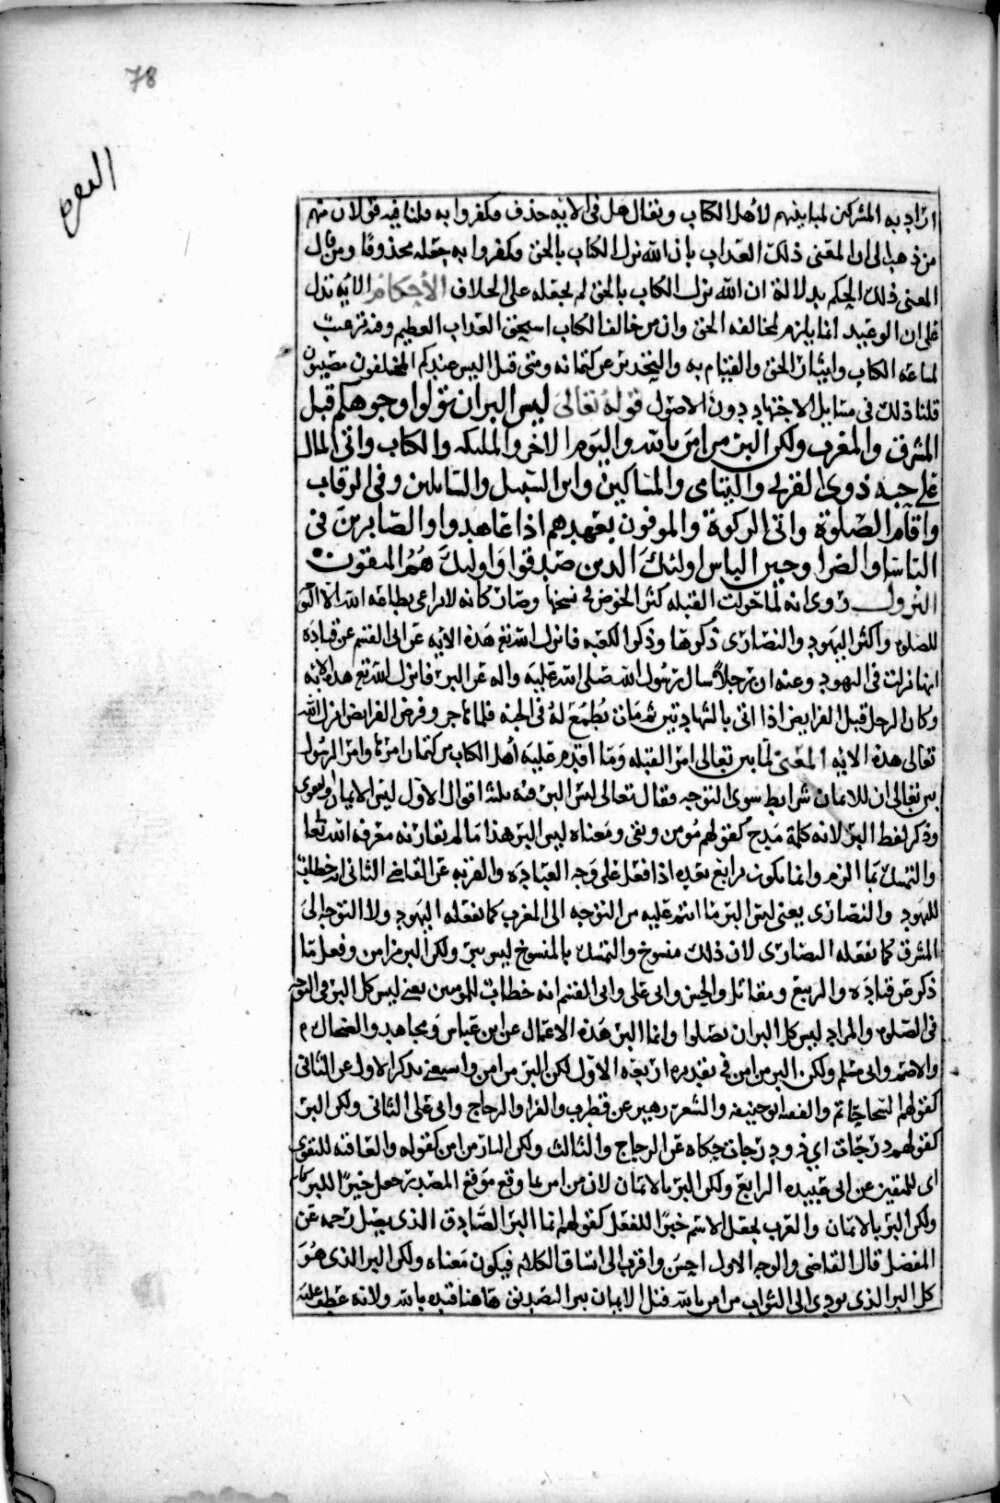 78
البقرة
اراد به المشركين لمباينتهم لأهل الكتاب ويقال هل في الآية حذف فكفروا به قلنا فيه قولان منهم
من ذهب الى ان المعنى ذلك العذاب بان الله نزل الكتاب بالحق وكفروا به جعله محذوفا ومن قال
المعنى ذلك الحكم بدلالة ان الله نزل الكتاب بالحق لم يجعله على الحذف الأحكام الآية تدل
على ان الوعيد انما يلزم لمخالفه الحق وان من خالف الكتاب استحق العذاب العظيم وقد ترغيب
الكتاب واتيان الحق والقيام به والتحذير عن كتمانه ومتى قيل اليس عندكم المختلفون مصيبون
قلنا ذلك في مسايل الاجتهاد دون الاصول قوله تعالى ليس البر ان تولوا وجوهكم قبل
المشرق والمغرب ولكن البر من امن بالله واليوم الاخر والملىكه والكتاب واتى المال
على حبه ذوى القربى واليتامى والمساكين وابن السبيل والسائلين وفي الرقاب
واقام الصلوة واتى الزكوة والموفون بعهدهم اذا عاهدوا والصابرين في
الباساء والضراء وحين الباس اولئك الذين صدقوا واولئك هم المتقون
النزول روى انه لما حولت القبله كثر الخوض في نسخها وصار كانه لا يراعى بطاعة الله الا التوجه
للصلوه واكثر اليهود والنصارى ذكرها وذكروا الكعبه فانزل الله تع هذه الآيه عن ابى القسم عن قتاده
انها نزلت في اليهود وعنه ان رجلا سال رسول الله صلى الله عليه واله عن البر فانزل الله تع هذه الايه
وكان الرجل قبل الفرايض اذا اتى بالشهادتين ثم مات يطمع له في الجنه فلما هاجر وفرض الفرايض انزل الله
تعالى هذه الايه المعنى لما بين تعالى امر القبله وما اقدم عليه اهل الكتاب من كتمان امرها وامر الرسول
بين تعالى ان للايمان شرايط سوى التوجه فقال تعالى ليس البر فيه ثلثه اقوال الاول ليس الايمان والتقوى
وذكر لفظ البر لانه كلمة مدح كقولهم مومن وتقى ومعناه ليس البر هذا ما لم تقارنه معرفه الله تعا
والتمسك بما الزم وانما يكون برا مع تعبد اذا فعل على وجه العباده والقربه عن القاضى الثانى انه خطاب
لليهود والنصارى يعنى ليس البر ما انتم عليه من التوجه الى المغرب كما تفعله اليهود ولا التوجه الى
المشرق كما تفعله النصارى لان ذلك منسوخ والتمسك بالمنسوخ ليس ببر ولكن البر من امن وفعل ما
ذكر عن قتاده والربيع ومقاتل والحسن وابى على وابى القسم انه خطاب للمومنين يعنى ليس كل البر في التوجه
في الصلوه والمراد ليس كل البر ان تصلوا وانما البر هذه الاعمال عن ابن عباس ومجاهد والضحاك
والاصم وابى مسلم ولكن البر من امن في تقديره اربعه الاول لكن البر من امن واستغنى بذكر الاول عن الثانى
كقولهم السخا حاتم والفقه ابو حنيفه والشعر زهير عن قطرب والفرا والزجاج وابى على الثانى ولكن البر
كقولهم درجات اي ذوو درجات حكاه عن الزجاج والثالث ولكن البار من امن كقوله والعاقبه للتقوى
اى للمتقين عن ابى عبيده الرابع ولكن البر بالايمان لان من امن لما وقع موقع المصدر جعل خبرا للبر كانه
ولكن البر بالايمان والعرب تجعل الاسم خبرا للفعل كقولهم انما البر الصادق الذى يصل رحمه عن
المفضل قال القاضى والوجه الاول احسن واقرب الى اتساق الكلام فيكون معناه ولكن البر الذى هو
كل البر الذى يودى الى الثواب من امن بالله قيل الايمان بين التصديق هاهنا قيده بالله ولانه عطف عليه